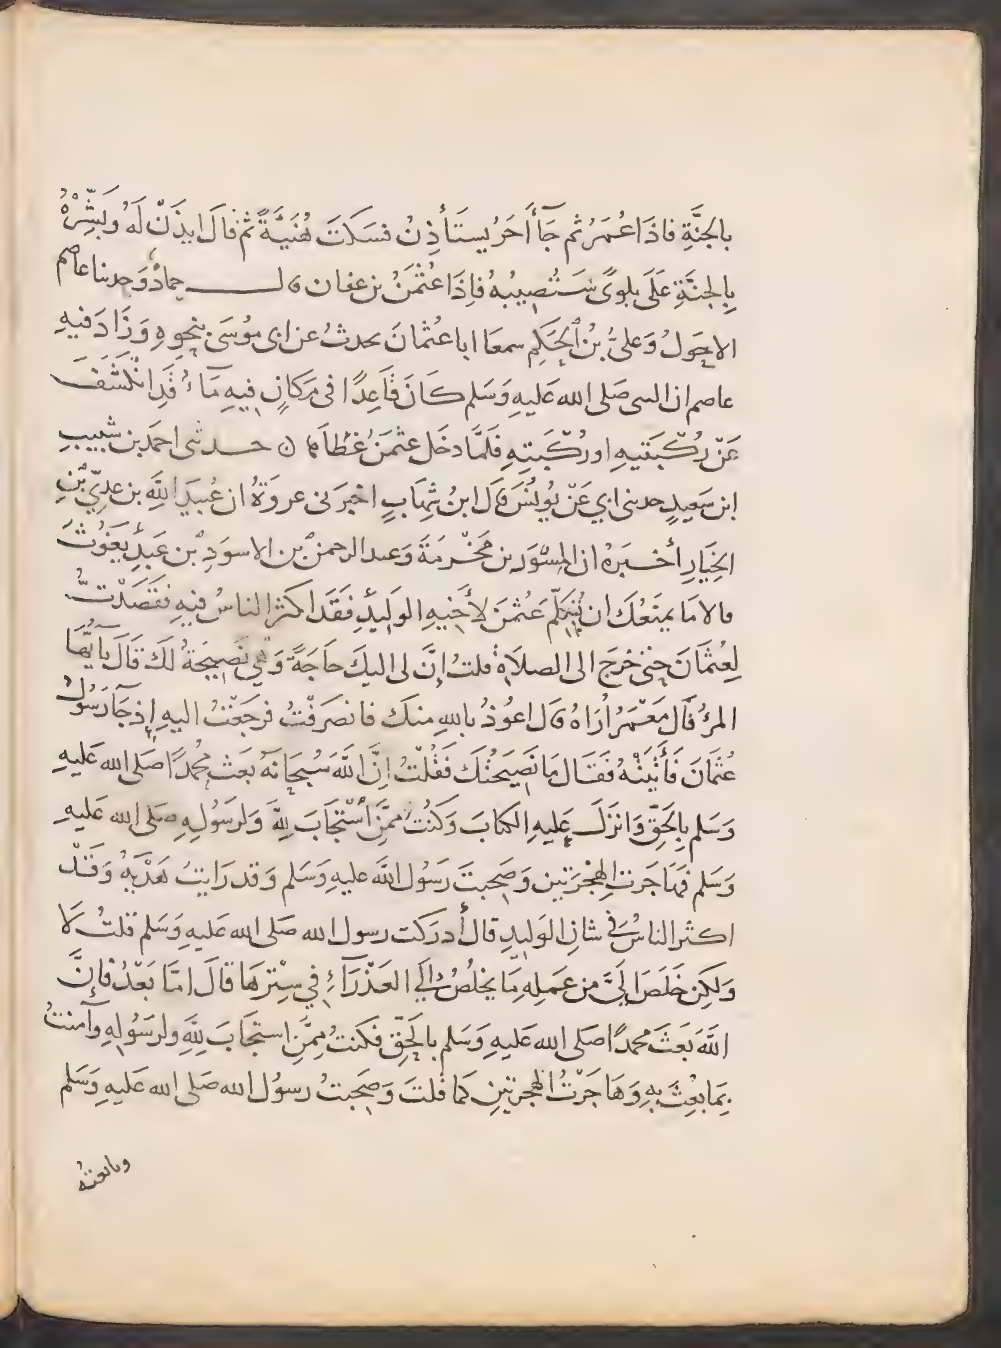 بِالجنَّةِ فاذَا عُمَرُ ثم جَآءَ آخَرُ يستَأذِنُ فسَكَتَ هُنَيَّةً ثمَّ قالَ ايذَنْ لَهُ وبَشِّرْهُ
بِالجنَّةِ عَلَى بلوىً سَتُصِيبُهُ فاِذَا عُثمَنُ بن عفان قال حمادٌ وَحدثنا عاصم
الاحوَلُ وَعَلىُّ بنُ الحَكَمِ سمعَا ابا عُثمانَ يحدثُ عن ابى موُسَى بنحوِهِ وَزَادَ فيهِ
عاصم ان النبى صَلى الله عَليهِ وَسَلم كَانَ قَاعِدًا فى مَكانٍ فِيهِ مَآءٌ قَدِ انْكَشَفَ
عَنْ رُكْبَتَيهِ او رُكْبَتِهِ فَلَمَّا دخَل عثمَنُ غطاهَا ن حدثنى احمَد بن شَبِيبِ
ابن سَعيدٍ حدثنى ابي عَنْ يُونُسَ قَال ابنُ شِهَابٍ اخبَرَنى عروَةُ ان عُبيدَ اللهِ بن عدِيِّ بْنِ
الخِيَارِ أخبَرَهُ ان المِسْوَرَ بن مَخْرمَةَ وَعبد الرحمن بن الاسوَدِ بن عَبدِ يَغوُثَ
قالا مَا يمنَعُكَ ان تُكَلِّمَ عثمنَ لِأَخيهِ الوَليدِ فَقَد اكثَر الناسُ فيهِ فقَصَدْتُ
لِعُثمَانَ حِتى خَرَجَ الى الصلاَةِ قلتُ إنَّ لى اليكَ حَاجَةً وَهْيَ نَصِيحَةٌ لَكَ قَالَ يآ أيُّهَا
المرُ قَالَ مَعْمَرٌ اُرَاهُ قال اعوُذُ بِاللهِ مِنكَ فانصَرَفْتُ فرجَعْتُ اليهِ إذ جَآءَ رَسُولُ
عُثمَانَ فَأتَيْتُهُ فقَالَ مَا نَصِيحَتُكَ فَقُلْتُ اِنَّ اللهَ سُبحَانَهُ بعَثَ محُمدًا صَلى الله عَليهِ
وَسَلم بِالحَقِّ وَانزَلَ عَليهِ الكتَابَ وَكنُتُ ممَّنِ اسْتَجَابَ لِلهِ وَلرَسُولِهِ صَلى الله عَليهِ
وَسَلم فهَاجَرتَ الهِجْرَتين وَصَحِبتَ رَسُولَ اللهِ عَليهِ وَسَلم وَقد رَايتَ هَدْيَهُ وَقَدْ
اكثر الناسُ فى شانِ الوَليدِ قالَ أدرَكت رسول الله صَلى الله عَليهِ وَسَلم قلتُ لا
وَلكِن خَلَصَ الِيَّ مِن عِلمِهِ مَا يخلُصُ اِلي العَذْرَآءِ في سِتْرِهَا قَالَ امَّا بَعْدُ فإنَّ
اللهَ بَعَثَ محمدًا صَلى الله عَليهِ وَسَلم بِالحَقِّ فكُنتُ مِمَّنِ استجَابَ لِلهِ ولرَسُولِهِ وآمنتُ
بِمَا بُعِثَ بِهِ وَهَاجَرْتُ الهِجرتَينِ كمَا قلتَ وَصَحِبتُ رسوُل الله صَلى الله عَليهِ وَسَلم
وبايعته